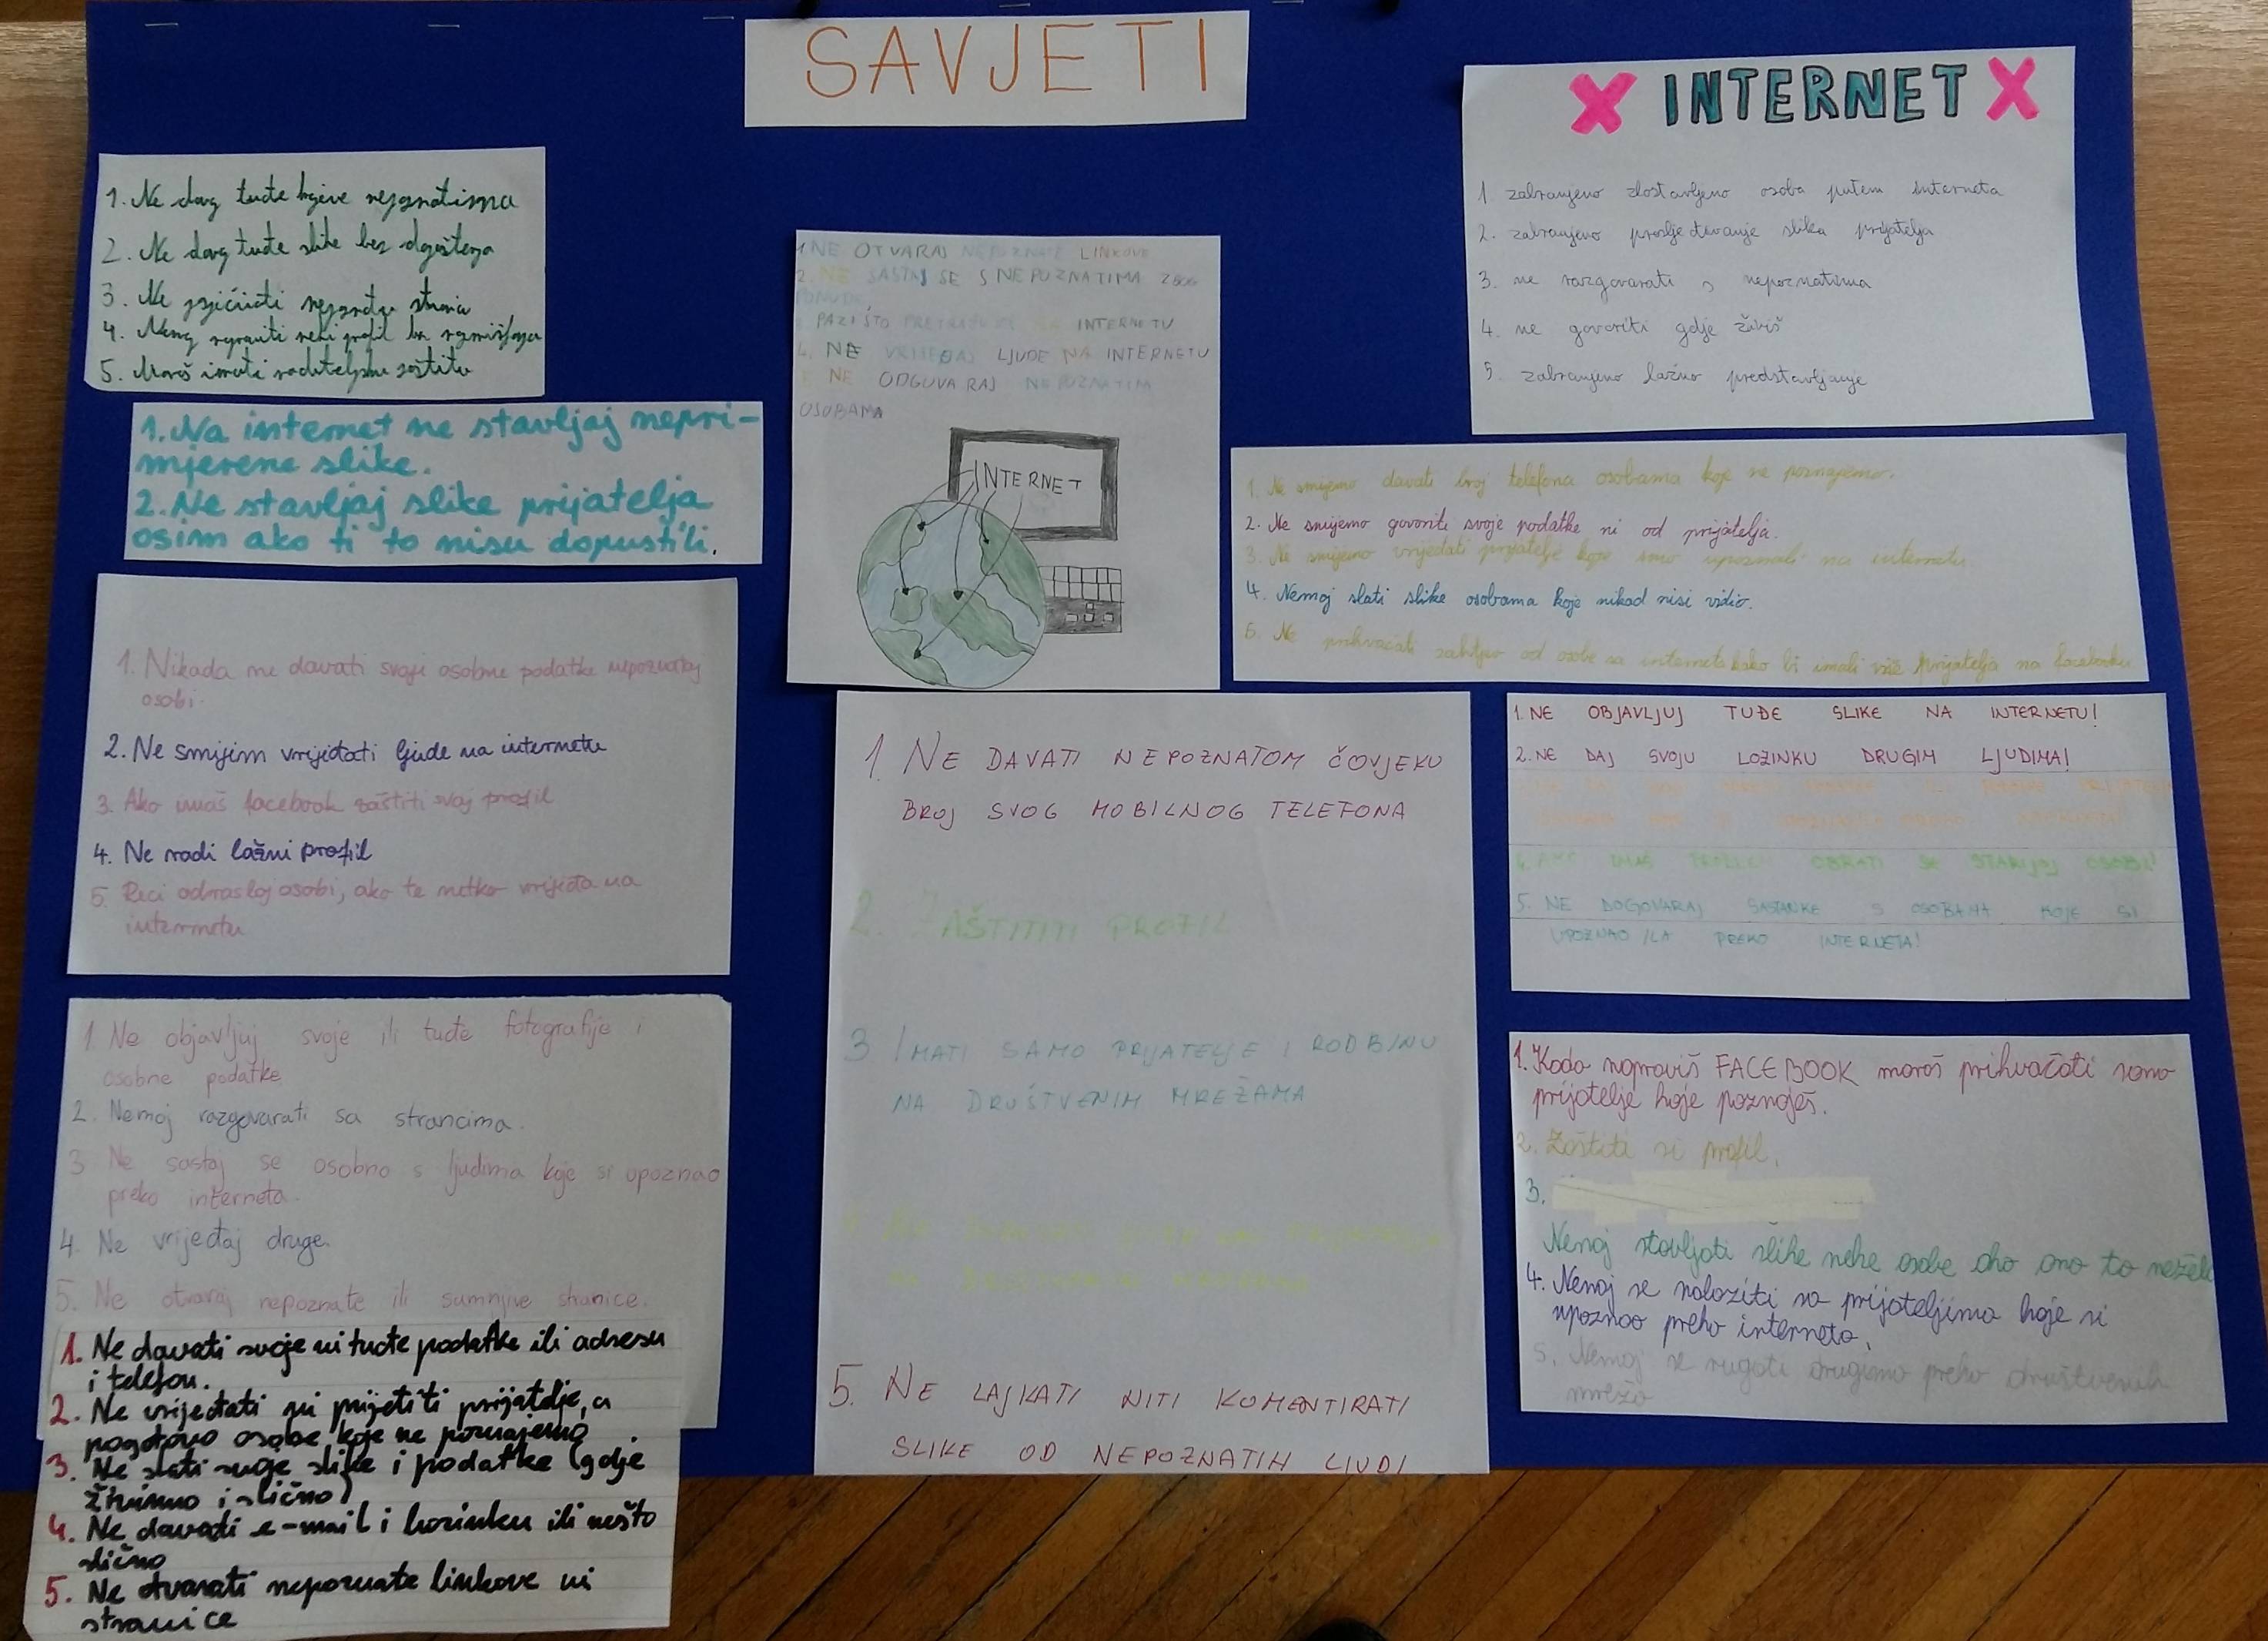 SAVJETI
1. Ne daj tuđe brojeve nepoznatima
2. Ne daj tuđe slike bez dopuštenja
3. Ne
4. Nemoj napraviti neki profil bez razmišljanja
5. Moraš imati roditeljsku zaštitu
1. Na internet ne stavljaj nepri-
mjerene slike.
2. Ne stavljaj slike prijatelja
osim ako ti to nisu dopustili.
1. Nikada ne davati svoje osobne podatke nepoznatoj
osobi.
2. Ne smijem vrijeđati ljude na internetu
3. Ako imaš facebook zaštiti svoj profil
4. Ne radi lažni profil
5. Reci odrasloj osobi, ako te netko vrijeđa na
internetu
1. Ne objavljuj svoje ili tuđe fotografije i
osobne podatke
2. Nemoj razgovarati sa strancima.
3 Ne sastaj se osobno s ljudima koje si upoznao
preko interneta.
4. Ne vrijeđaj druge.
5. Ne otvaraj nepoznate ili sumnjive stranice.
1. Ne davati svoje ni tuđe podatke ili adresu
i telefon.
2. Ne vrijeđati ni prijetiti prijatelje, a
pogotovo osobe koje ne poznajemo.
3. Ne slati svoje slike i podatke (gdje
živimo i slično)
4. Ne davati e-mail i lozinku ili nešto
slično
5. Ne otvarati nepoznate linkove ni
stranice
1 NE OTVARAJ NEPOZNATE LINKOVE
2. NE SASTAJ SE S NEPOZNATIMA ZBOG
PONUDE,
PAZI ŠTO PRETRAŽUJEŠ INTERNETU
4. NE VRIJEĐAJ LJUDE NA INTERNETU
NE ODGOVARAJ NEPOZNATIM
OSOBAMA
INTERNET
1. NE DAVATI NEPOZNATOM ČOVJEKU
BROJ SVOG MOBILNOG TELEFONA
2. ZAŠTITITI PROFIL
3 IMATI SAMO PRIJATELJE I RODBINU
NA DRUŠTVENIM MREŽAMA
5. NE LAJKATI NITI KOMENTIRATI
SLIKE OD NEPOZNATIH LJUDI
X INTERNET X
1 zabranjeno dostavljeno osoba putem interneta
2. zabranjeno prosljeđivanje slika prijatelja
3. ne razgovarati s nepoznatima
4. ne govoriti gdje živiš
5. zabranjeno lažno predstavljanje
1. Ne smijemo davati broj telefona osobama koje ne poznajemo.
2. Ne smijemo govoriti svoje podatke ni od prijatelja.
3. Ne smijemo vrijeđati prijatelje koje smo upoznali na internetu.
4. Nemoj slati slike osobama koje nikad nisi vidio.
5. Ne prihvaćati zahtjev od osobe sa interneta kako bi imali više prijatelja na facebooku
1. NE OBJAVLJUJ TUĐE SLIKE NA INTERNETU!
2. NE DAJ SVOJU LOZINKU DRUGIM LJUDIMA!
4. AKO IMAŠ PROBLEM OBRATI SE STARIJOJ OSOBI!
5. NE DOGOVARAJ SASTANKE S OSOBAMA KOJE SI
UPOZNAO/LA PREKO INTERNETA!
1. Kada napraviš FACEBOOK moraš prihvaćati samo
prijatelje koje poznaješ.
2. Zaštiti si profil.
3.
Nemoj stavljati slike neke osobe ako ona to neželi
4. Nemoj se nalaziti sa prijateljima koje si
upoznao preko interneta.
5. Nemoj se rugati drugima preko društvenih
mreža